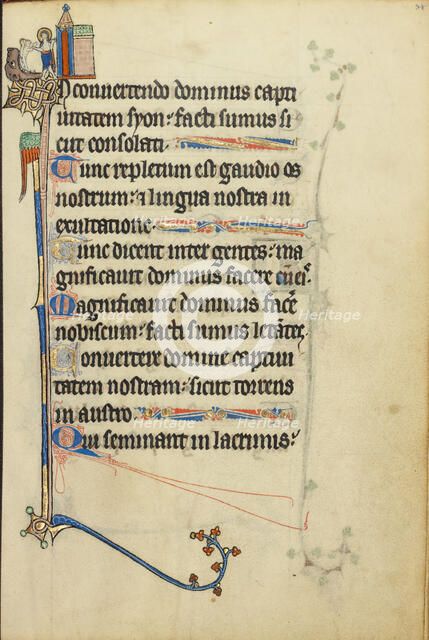 In convertendo dominus capti
uitatem syon: facti sumus si
cut consolati
Tunc repletum est gaudio os
nostrum: ⁊ lingua nostra in
exultatione
Tunc dicent inter gentes: ma
gnificauit dominus facere cū eiˢ.
Magnificauit dominus facē
nobiscum: facti sumus letātes
Conuertere domine captiui
tatem nostram: sicut torrens
in austro
Qui seminant in lacrimis:
Heritage
Heritage
Heritage
Heritage
Heritage
Heritage